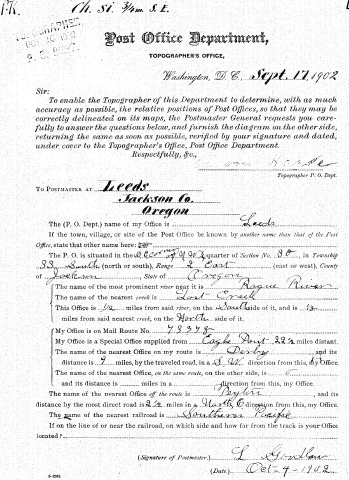 Ch. St. 3/4 m. S.E.
TOPOGRAPHER
P. O. DEPT.
Post Office Department,
TOPOGRAPHER'S OFFICE,
Washington, D. C., Sept. 17, 1902
Sir:
To enable the Topographer of this Department to determine, with as much
accuracy as possible, the relative positions of Post Offices, so that they may be
correctly delineated on its maps, the Postmaster General requests you care-
fully to answer the questions below, and furnish the diagram on the other side,
returning the same as soon as possible, verified by your signature and dated,
under cover to the Topographer's Office, Post Office Department.
Respectfully, &c.,
Topographer P. O. Dept.
TO POSTMASTER AT Leeds
Jackson Co.
Oregon
The (P. O. Dept.) name of my Office is Leeds
If the town, village, or site of the Post Office be known by another name than that of the Post
Office, state that other name here:
The P. O. is situated in the quarter of Section No. 30, in Township
33 South (north or south), Range 2 East (east or west), County
of Jackson, State of Oregon
The name of the most prominent river near it is Rogue River
The name of the nearest creek is Lost Creek
This Office is miles from said river, on the South side of it, and is
miles from said nearest creek, on the North side of it.
My Office is on Mail Route No. 73348
My Office is a Special Office supplied from Eagle Point 22½ miles distant.
The name of the nearest Office on my route is Derby, and its
distance is 9 miles, by the traveled road, in a S. W. direction from this, my Office.
The name of the nearest Office, on the same route, on the other side, is
and its distance is miles in a direction from this, my Office.
The name of the nearest Office off the route is Peyton, and its
distance by the most direct road is 2½ miles in a North E direction from this, my Office.
The name of the nearest railroad is Southern Pacific
If on the line of or near the railroad, on which side and how far from the track is your Office
located?
(Signature of Postmaster.) L
(Date.) Oct-4-1902